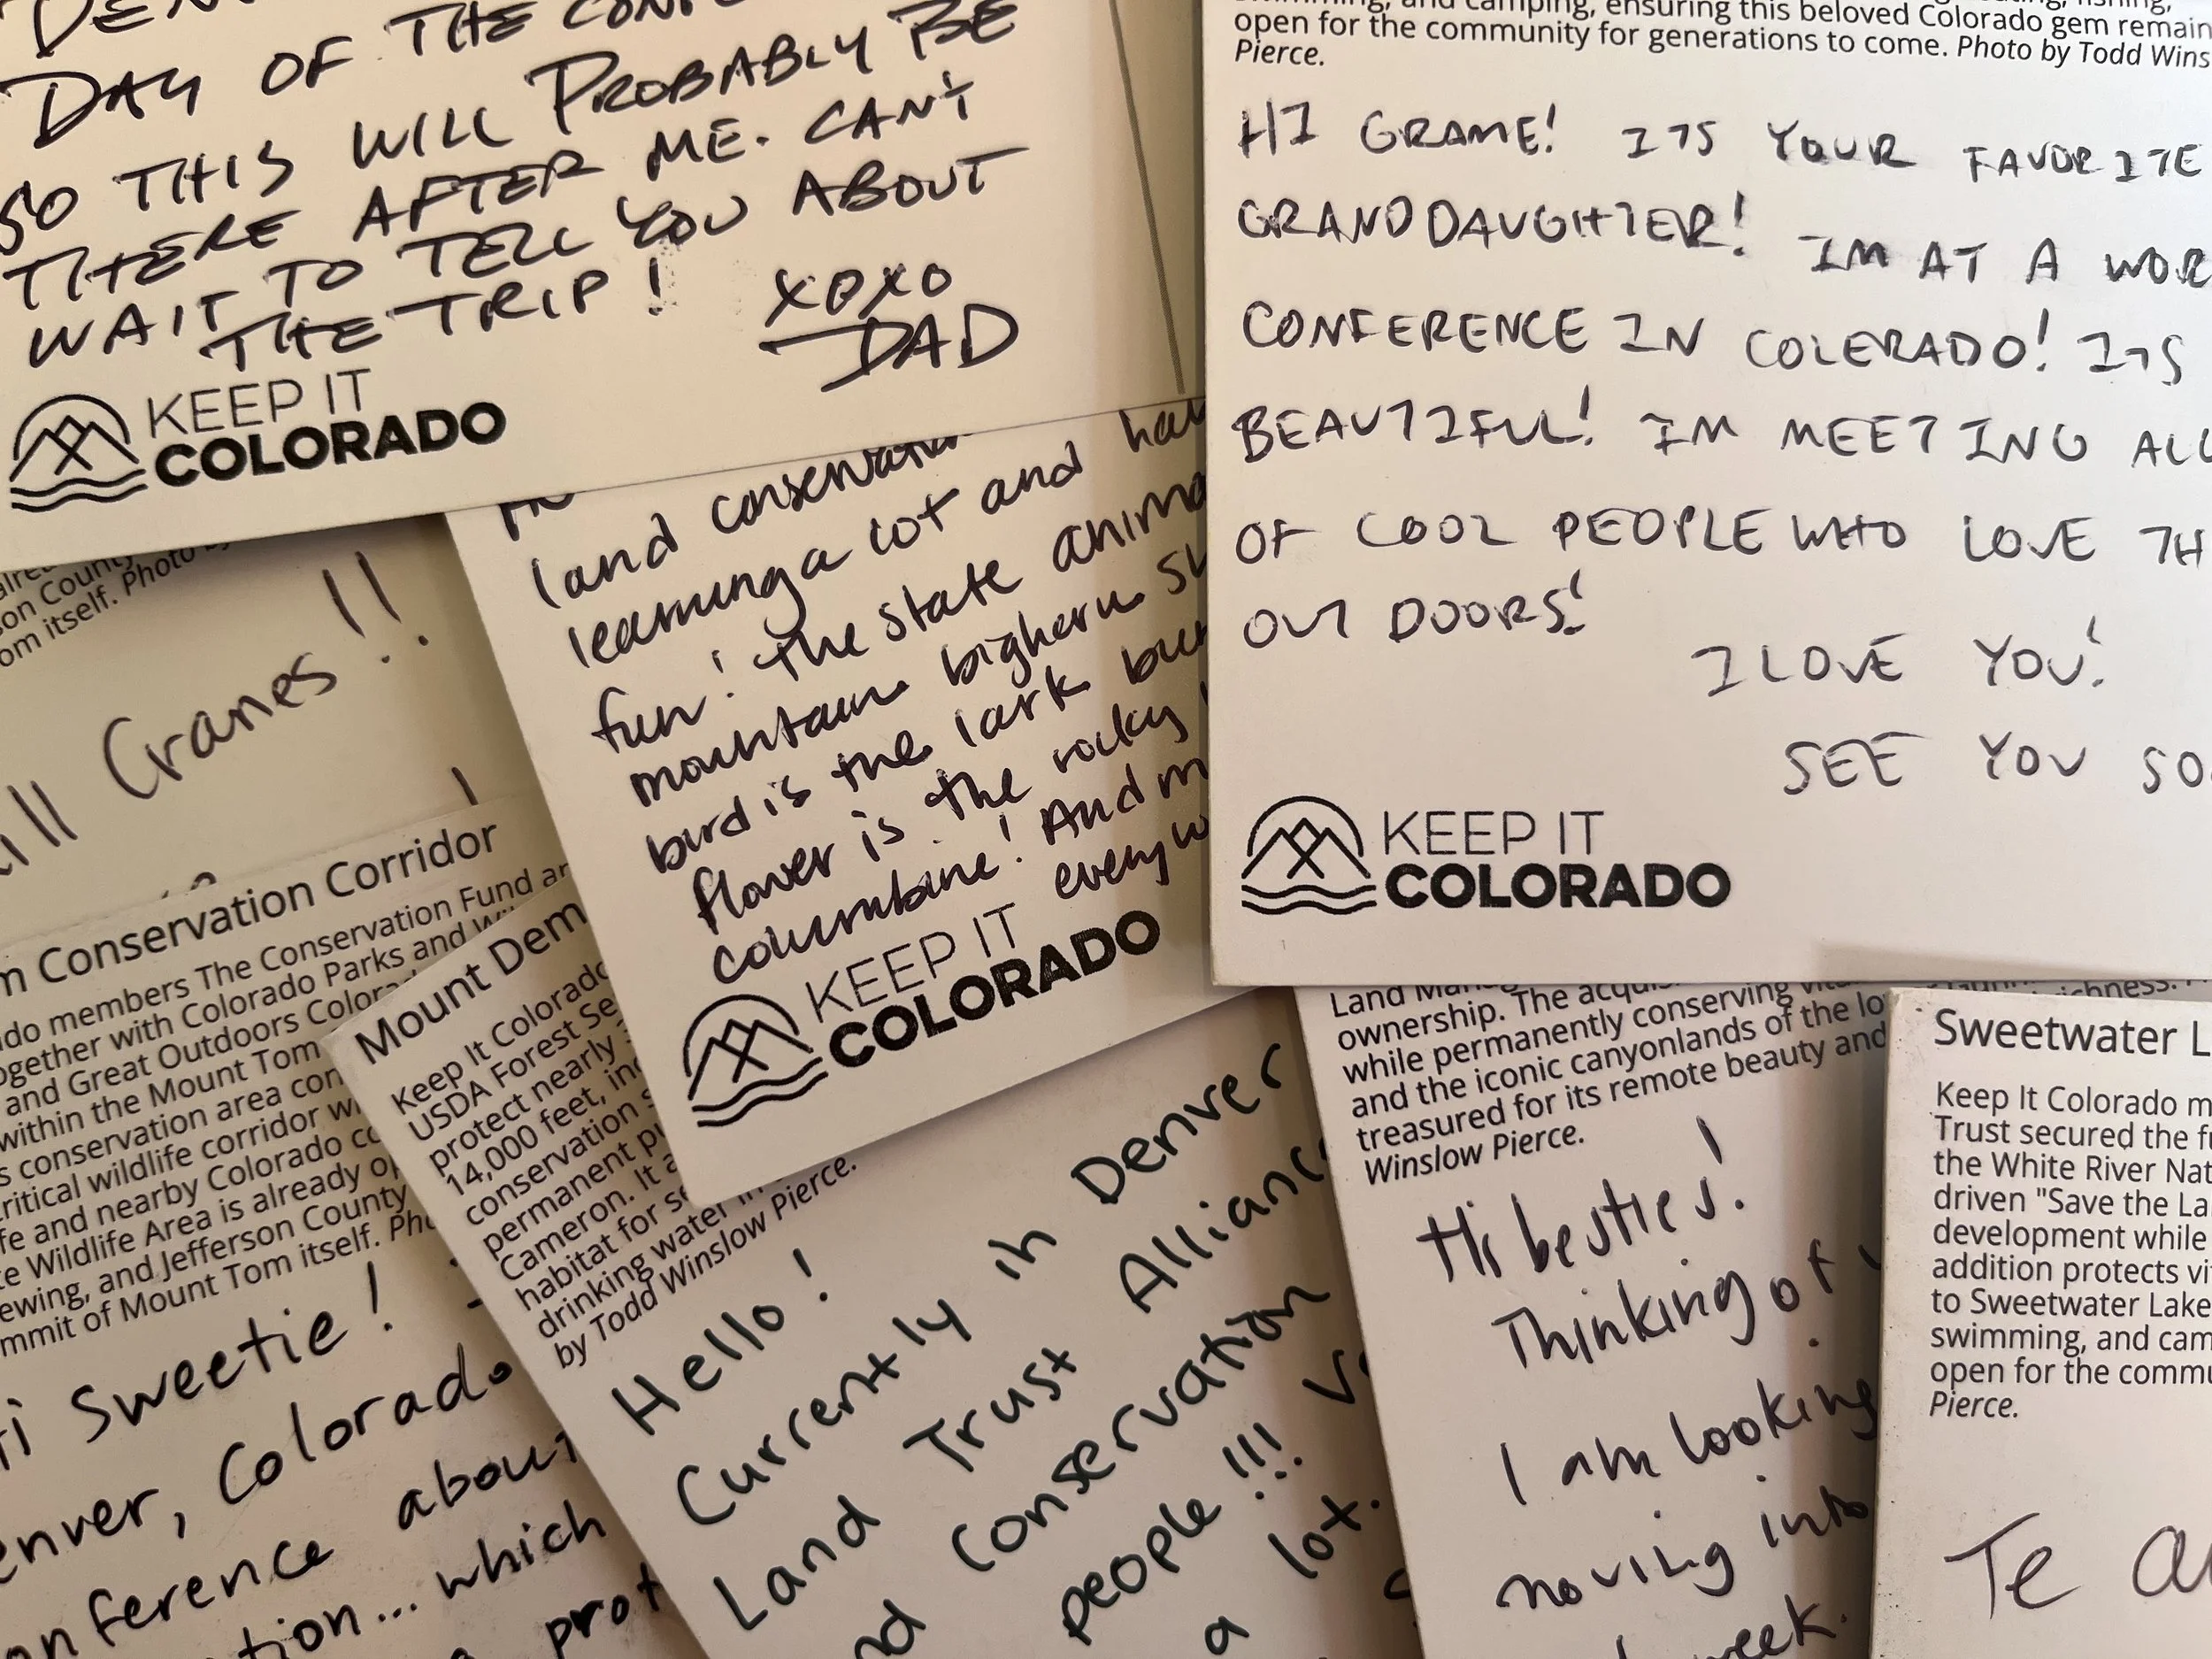 DAY OF THE
SO THIS WILL PROBABLY BE
THERE AFTER ME. CAN'T
WAIT TO TELL YOU ABOUT
THE TRIP!
XOXO
DAD
KEEP IT
COLORADO
camping, ensuring this beloved Colorado gem remain
open for the community for generations to come. Photo by Todd Wins
Pierce.
HI GRAME! ITS YOUR FAVORITE
GRANDDAUGHTER! IM AT A WOR
CONFERENCE IN COLERADO! ITS
BEAUTIFUL! IM MEETING ALL
OF COOL PEOPLE WHO LOVE TH
OUT DOORS!
I LOVE YOU!
SEE YOU SO
KEEP IT
COLORADO
land conservation
learning a lot and
fun! the state anima
mountain bighorn
bird is the lark bun
flower is the rocky
columbine! And m
everyw
KEEP IT
COLORADO
son County
om itself. Photo
Cranes!!
m Conservation Corridor
do members The Conservation Fund
ogether with Colorado Parks and
and Great Outdoors Colora
within the Mount Tom
s conservation area con
critical wildlife corridor wi
fe and nearby Colorado co
te Wildlife Area is already op
ewing, and Jefferson County
mmit of Mount Tom itself. Pho
Hi Sweetie!
enver, Colorado
onference about
tion... which
prot
Mount Dem
Keep It Colorado
USDA Forest Se
protect nearly
14,000 feet, inc
conservation
permanent pu
Cameron. It a
habitat for se
drinking water
by Todd Winslow Pierce.
Hello!
Currently in Denver
Land Trust Alliance
Conservation
people!!!
a lot.
Land
ownership. The acquis
while permanently conserving
and the iconic canyonlands of the lo
treasured for its remote beauty and
Winslow Pierce.
Hi besties!
Thinking of
I am looking
moving into
week.
Sweetwater L
Keep It Colorado m
Trust secured the fu
the White River Nat
driven "Save the La
development while
addition protects vi
to Sweetwater Lake
swimming, and cam
open for the commu
Pierce.
Te